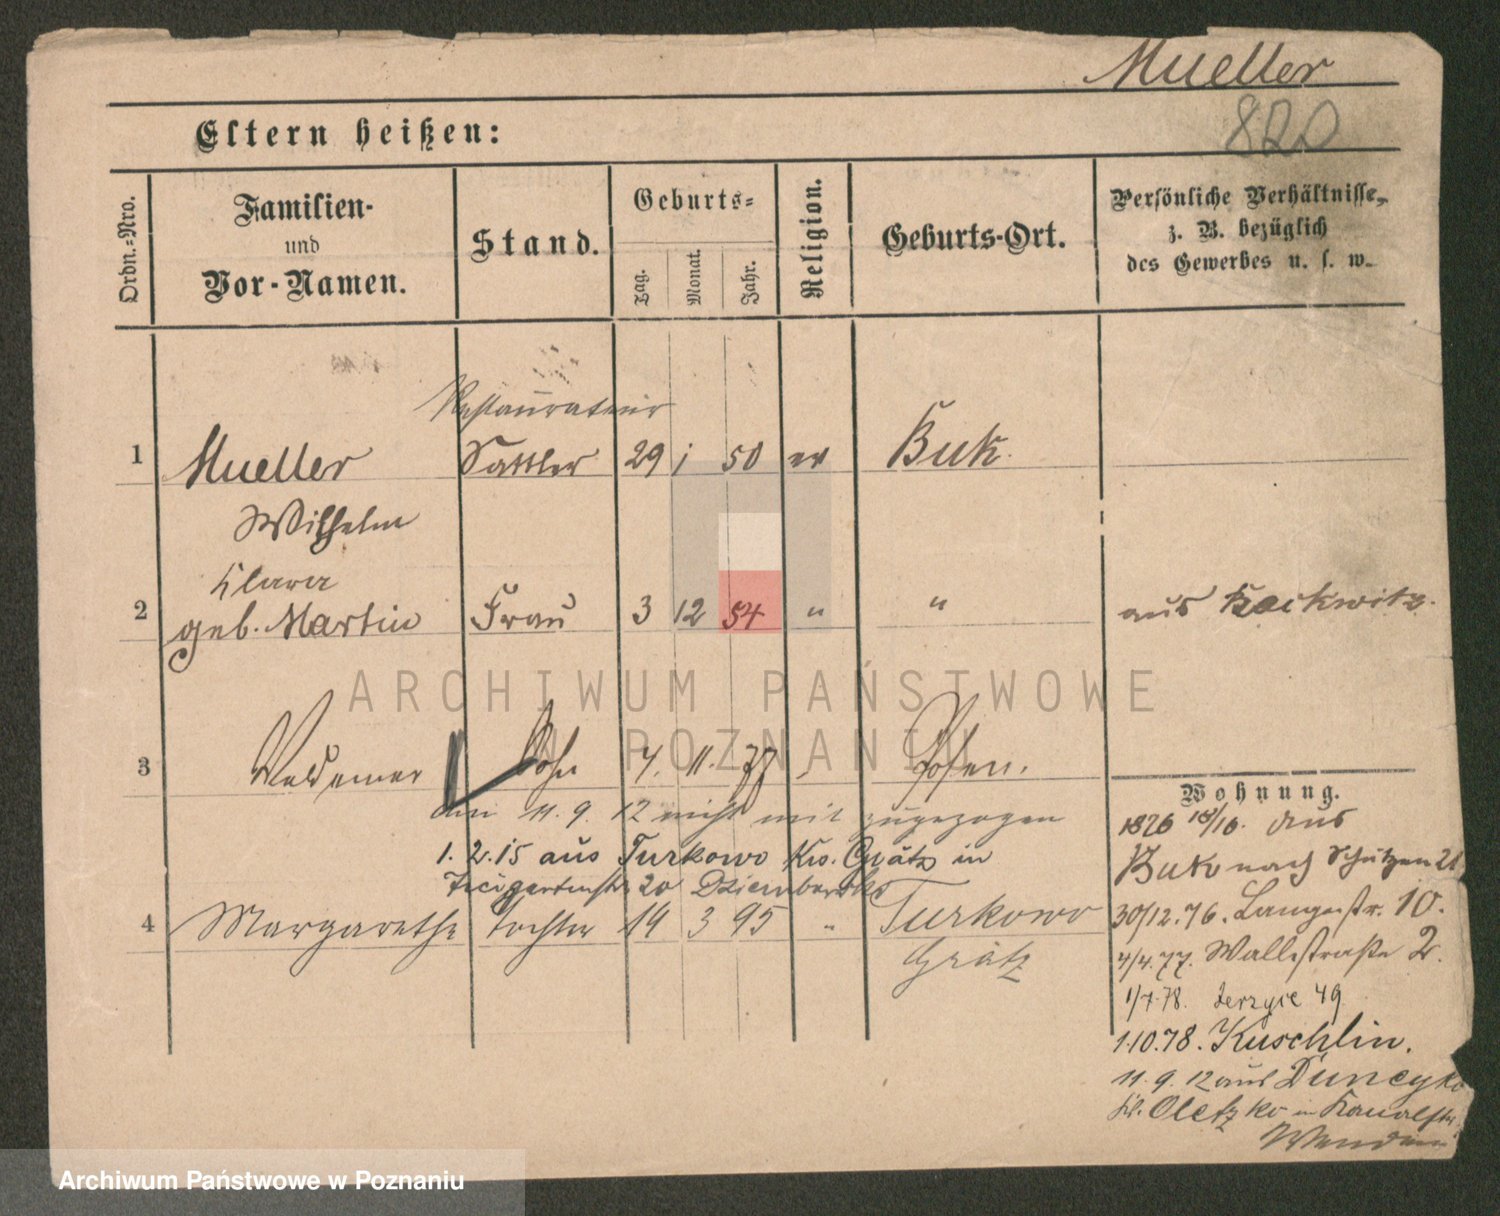 Mueller
820
Eltern heißen:
Ordn.-Nro.
Familien-
und
Vor-Namen.
Stand.
Geburts-
Tag.
Monat.
Jahr.
Religion.
Geburts-Ort.
Persönliche Verhältnisse,
z. B. bezüglich
des Gewerbes u. s. w.
Restaurateur
1 Mueller Sattler 29 1 50 ev Buk.
Wilhelm
Klara
2 geb. Martin Frau 3 12 54 " " aus
ARCHIWUM PAŃSTWOWE
W POZNANIU
3 Sohn 4. 11. 77 Posen.
Wohnung.
den 11. 9. 12 nicht mit zugezogen
1876 18/10. aus
1. 2. 15 aus Turkowo Krs. Grätz in
Buk nach Schützen 21
20 Dziembowski
4 Margarethe Tochter 14 3 95 " Turkowo
Grätz
30/12. 76. Langestr. 10.
4/4. 77. Wallstraße 2.
1/7. 78. Jerzyce 49
1.10.78. Kuschlin.
11. 9. 12 aus
Kr. Oletzko in Kanalstr.
Archiwum Państwowe w Poznaniu